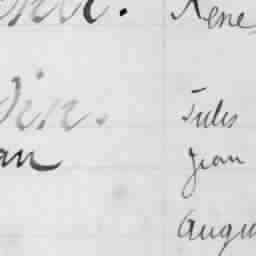 René
din.
Jules
an
Jean
Augu